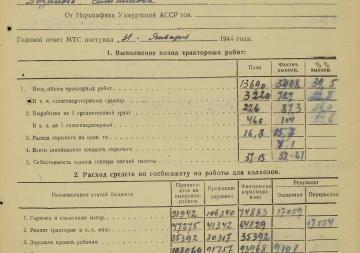 От Наркомфина Удмуртской АССР тов.
Годовой отчет МТС поступил 31 " Января 1944 года.
1. Выполнение плана тракторных работ:
План Фактич. выполн. % % выполн.
1. Весь объем тракторных работ 13690 5408 39,5
В т. ч. газогенераторными тракторами 3220 727
2. Выработка на 1 среднегодовой тракт 226 87,3
В т. ч. на 1 газогенераторный 460 104
3. Расход горючего на один га 16,8 15,7
4. Всего сэкономлено жидкого горючего
5. Себестоимость одного гектара мягкой пахоты 37-15 52-61
2. Расход средств по госбюджету на работы для колхозов.
Наименование статей бюджета Причитается на выполнен. работы Профинансировано Фактически израсходовано Результат
Экономия Перерасход
1. Горючее и смазочные матер. 91942 106340 74883 17059
2. Ремонт тракторов и с. х. маш. 47275 41342 64829 17554
3. Зарплата произв. рабочих 35392 30317 35392
103066 91757 93968 9108